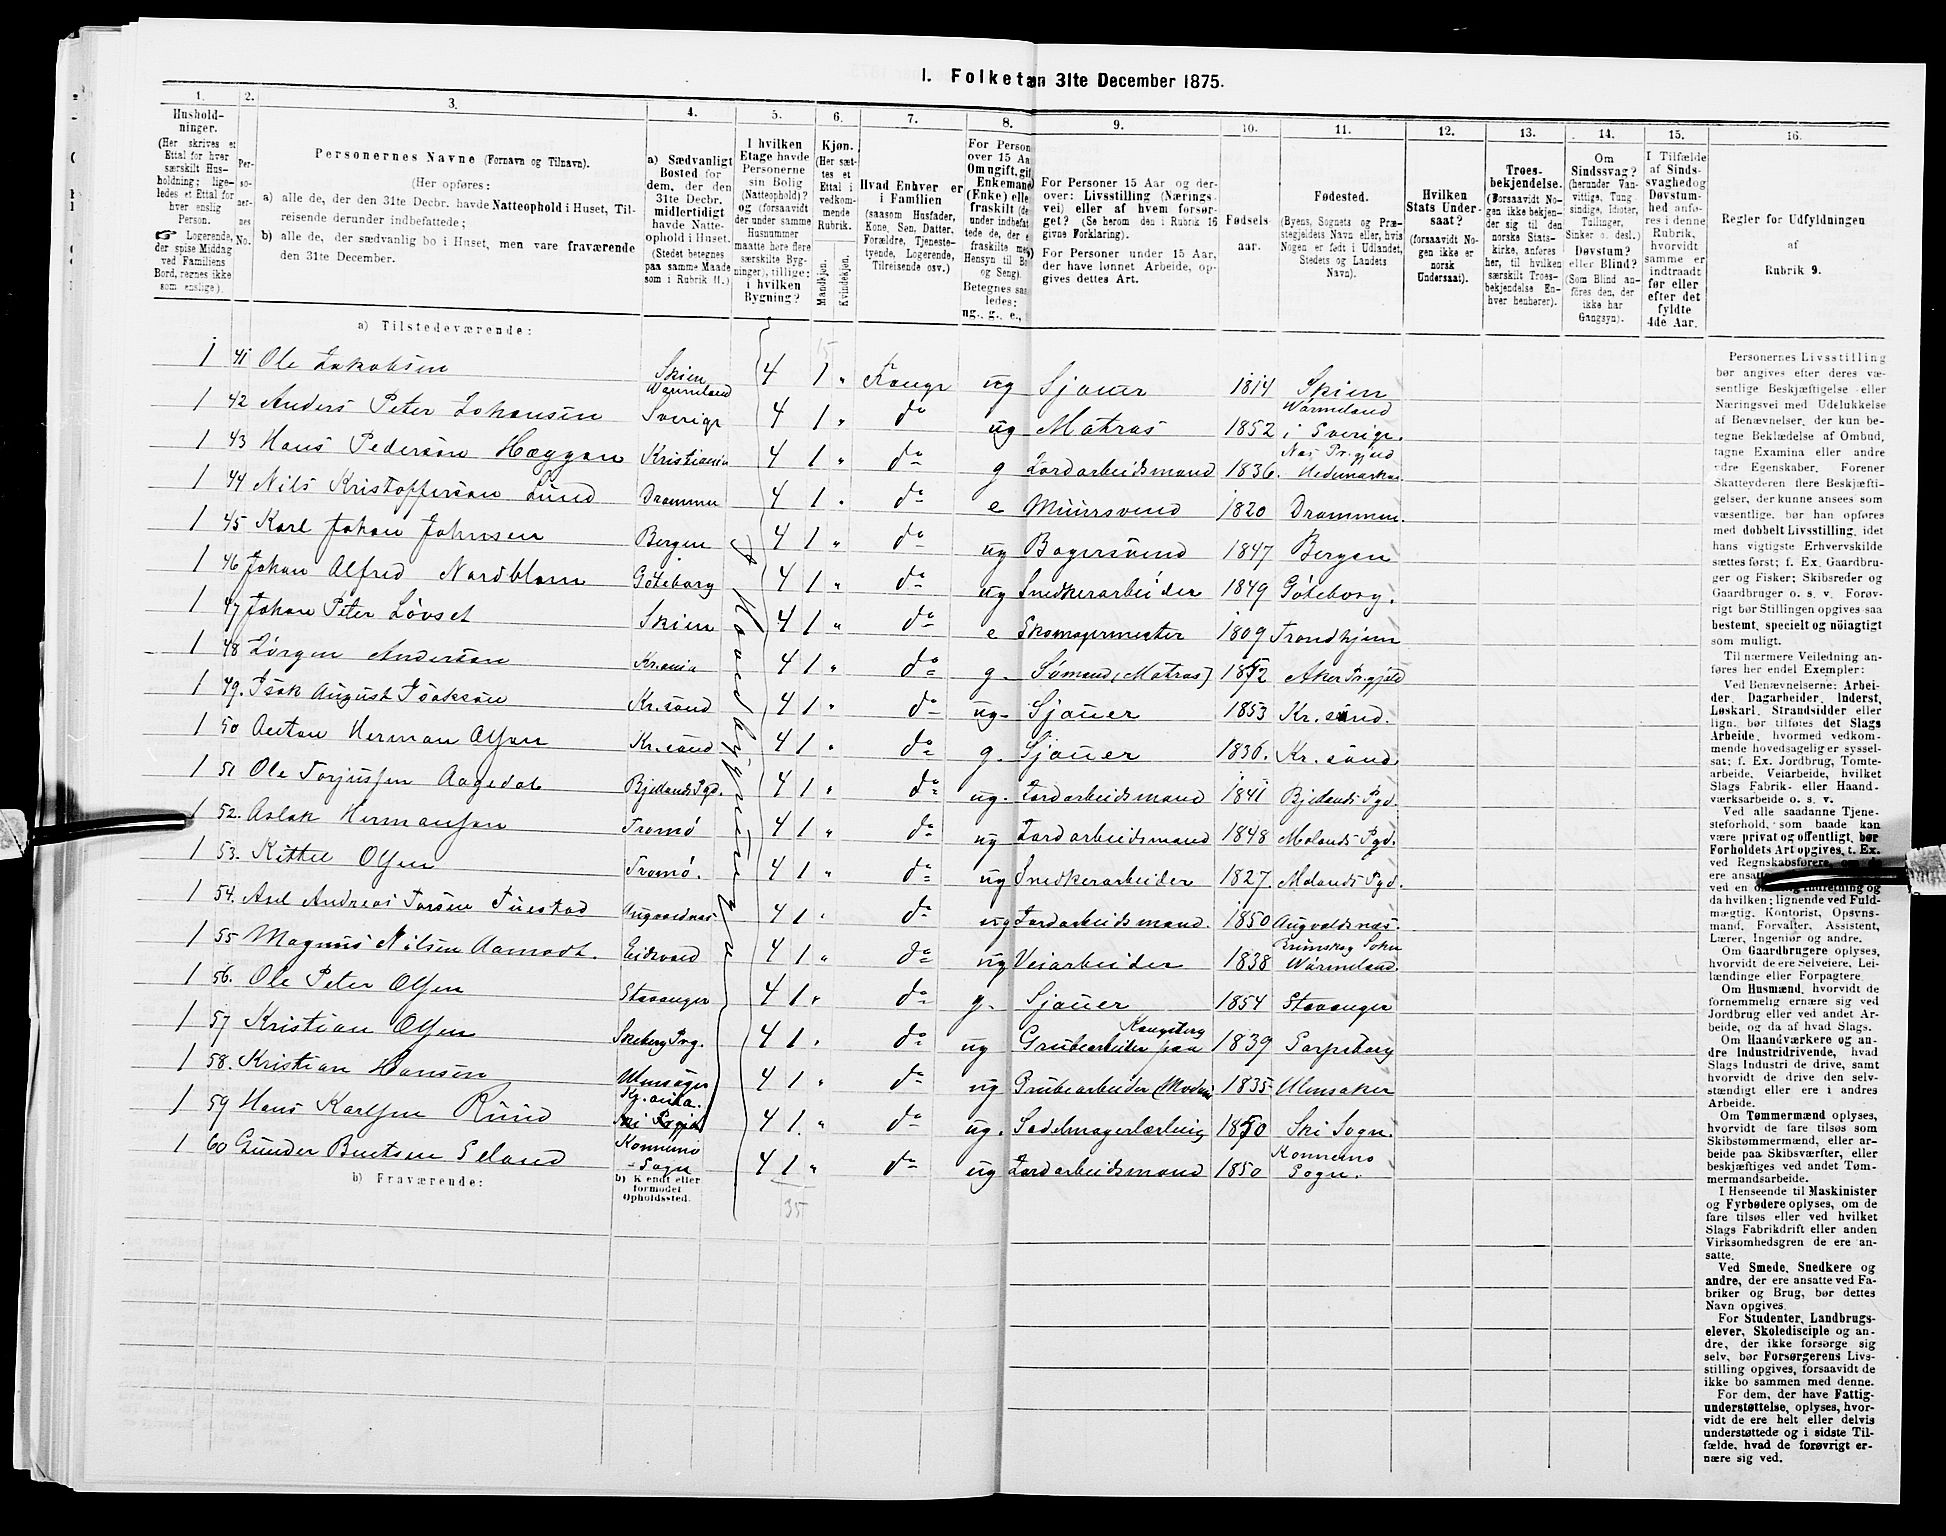 I. Folketæn 31te December 1875.
1.
Hushold-
ninger.
(Her skrives et
Ettal for hver
særskilt Hus-
holdning; lige-
ledes et Ettal for
hver enslig
Person.
Logerende,
der spise Middag
ved Familiens
Bord, regnes ikke
som enslige).
2.
Per-
so-
ner-
nes
No.
3.
Personernes Navne (Fornavn og Tilnavn).
(Her opføres:
a) alle de, der den 31te Decbr. havde Natteophold i Huset, Til-
reisende derunder indbefattede;
b) alle de, der sædvanlig bo i Huset, men vare fraværende
den 31te December.
4.
a) Sædvanligt
Bosted for
dem, der den
31te Decbr.
midlertidigt
havde Natte-
ophold i Huset.
(Stedet betegnes
paa samme Maade
som i Rubrik 11.)
5.
I hvilken
Etage havde
Personerne
sin Bolig
(Natteophold)?
og (forsaavidt
der under samme
Husnummer
maatte høre flere
særskilte Byg-
ninger), tillige:
i hvilken
Bygning?
6.
Kjøn.
(Her sæt-
tes et
Ettal i
vedkom-
mende
Rubrik.
Mandkjøn.
Kvindekjøn.
7.
Hvad Enhver er
i Familien
(saasom Husfader,
Kone, Søn, Datter,
Forældre, Tjeneste-
tyende, Logerende,
Tilreisende osv.)
8.
For Person
over 15 Aa
Om ugift, gif
Enkemand
(Enke) elle
fraskilt (de
under indbefat-
tede de, der e
fraskilte me
Hensyn til Bo
og Seng).
Betegnes saa
ledes:
ug., g., e.,
9.
For Personer 15 Aar og der-
over: Livsstilling (Nærings-
vei) eller af hvem forsør-
get? (Se herom den i Rubrik 16
givne Forklaring).
For Personer under 15 Aar,
der have lønnet Arbeide, op-
gives dettes Art.
10.
Fødsels-
aar.
11.
Fødested.
(Byens, Sognets og Præ-
stegjeldets Navn eller, hvis
Nogen er født i Udlandet,
Stedets og Landets
Navn).
12.
Hvilken
Stats Under-
saat?
(forsaavidt No-
gen ikke er
norsk
Undersaat).
13.
Troes-
bekjendelse.
(Forsaavidt No-
gen ikke bekjen-
der sig til den
norske Stats-
kirke, anføres
her, til hvilken
særskilt Troes-
bekjendelse En-
hver henhører).
14.
Om
Sindssvag?
(herunder Van-
vittige, Tung-
sindige, Idioter,
Tullinger,
Sinker o. desl.)
Døvstum?
eller Blind?
(Som Blind an-
føres den, der
ikke har
Gangsyn).
15.
I Tilfælde
af Sinds-
svaghed og
Døvstum-
hed anfø-
res i denne
Rubrik,
hvorvidt
samme er
indtraadt
før eller
efter det
fyldte
4de Aar.
16.
Regler for Udfyldningen
af
Rubrik 9.
a) Tilstedeværende:
1 41 Ole Jakobsen Skien 4 1 " Fange ug Sjouer 1814 Skien
1 42 Anders Peter Johansen Wärmeland Sverige 4 1 " do ug Matros 1852 Wärmeland i Sverige.
1 43 Hans Pedersen Haggen Kristiania 4 1 " do g Jordarbeidsmand 1836. Næs Prgjeld Hedemarken
1 44 Nils Kristoffersen Lund Drammen 4 1 " do e Muursvend 1820 Drammen.
1 45 Karl Johan Johnsen Bergen 4 1 " do ug Bagersvend 1847 Bergen
1 46 Johan Alfred Nordblom Göteborg 4 1 " do ug Snedkerarbeider 1849 Göteborg.
1 47 Johan Peter Løvset Skien 4 1 " do e Skomagermester 1809 Trondhjem
1 48 Jørgen Andersen Kr.ania 4 1 " do g. Sømand (Matros) 1852 Aker Prgjeld
1 49. Isak August Isaksen Kr.sand 4 1 " do ug. Sjouer 1853 Kr.sand.
1 50 Anton Herman Olsen Kr.sand 4 1 " do g. Sjouer 1836. Kr.sand.
1 51 Ole Torjussen Aagedal Bjellands Pgd. 4 1 " do ug. Jordarbeidsmand 1841 Bjellands Pgd.
1 52. Aslak Hermansen Tromø 4 1 " do ug Jordarbeidsmand 1848 Molands Pgd.
1 53. Kittel Olsen Tromø. 4 1 " do ug Snedkerarbeider 1827. Molands Pgd.
1 54. Axel Andreas Torsen Tuestad Augvaldnæs 4 1 " do ug Jordarbeidsmand. 1850 Augvaldsnæs.
1 55 Magnus Nilsen Aamodt. Eidsvold 4 1 " do ug Veiarbeider 1838 Brunskog Sokn Wärmeland.
1 56. Ole Peter Olsen Stavanger 4 1 " do g. Sjouer 1854 Stavanger
1 57 Kristian Olsen Skeberg Prg. 4 1 " do ug Grubearbeider paa Kongsberg 1839 Sarpsborg
1 58. Kristian Hansen Ulensager 4 1 " do ug Grubearbeider (Modum 1835 Ulensaker
1 59 Hans Karlsen Ruud Kr.ania. Ski Prgjeld 4 1. " do ug. Sadelmagerlærling 1850 Ski Sogn.
1 60 Gunder Bentsen Eeland Konnemo Sogn 4 1 " do ug Jordarbeidsmand 1850 Konnemo Sogn.
Hovedbygningen
15
35
b) Fraværende:
b) Kjendt eller
formodet
Opholdssted.
Personernes Livsstilling
bør angives efter deres væ-
sentlige Beskjæftigelse eller
Næringsvei med Udelukkelse
af Benævnelser, der kun be-
tegne Beklædelse af Ombud,
tagne Examina eller andre
ydre Egenskaber. Forener
Skatteyderen flere Beskjæfti-
gelser, der kunne ansees som
væsentlige, bør han opføres
med dobbelt Livsstilling, idet
hans vigtigste Erhvervskilde
sættes først; f. Ex. Gaardbru-
ger og Fisker; Skibsreder og
Gaardbruger o. s. v. Forøv-
rigt bør Stillingen opgives saa
bestemt, specielt og nøiagtigt
som muligt.
Til nærmere Veiledning an-
føres her endel Exempler:
Ved Benævnelserne: Arbei-
der, Dagarbeider, Inderst,
Løskarl, Strandsidder eller
lign. bør tilføies det Slags
Arbeide, hvormed vedkom-
mende hovedsagelig er syssel-
sat; f. Ex. Jordbrug, Tomte-
arbeide, Veiarbeide, hvilket
Slags Fabrik- eller Haand-
værksarbeide o. s. v.
Ved alle saadanne Tjene-
steforhold, som baade kan
være privat og offentligt, bør
Forholdets Art opgives, t. Ex.
ved Regnskabsførere, om de
ere ansatte
ved en offentlig Indretning og
da hvilken; lignende ved Fuld-
mægtig, Kontorist, Opsyns-
mand, Forvalter, Assistent,
Lærer, Ingeniør og andre.
Om Gaardbrugere oplyses,
hvorvidt de ere Selveiere, Lei-
lændinge eller Forpagtere.
Om Husmænd, hvorvidt de
fornemmelig ernære sig ved
Jordbrug eller ved andet Ar-
beide, og da af hvad Slags.
Om Haandværkere og an-
dre Industridrivende, hvad
Slags Industri de drive, samt
hvorvidt de drive den selv-
stændigt eller ere i andres
Arbeide.
Om Tømmermænd oplyses,
hvorvidt de fare tilsøs som
Skibstømmermænd, eller ar-
beide paa Skibsværfter, eller
beskjæftiges ved andet Tøm-
mermandsarbeide.
I Henseende til Maskinister
og Fyrbødere oplyses, om de
fare tilsøs eller ved hvilket
Slags Fabrikdrift eller anden
Virksomhedsgren de ere an-
satte.
Ved Smede, Snedkere og
andre, der ere ansatte ved Fa-
briker og Brug, bør dettes
Navn opgives.
For Studenter, Landbrugs-
elever, Skoledisciple og an-
dre, der ikke forsørge sig
selv, bør Forsørgerens Livs-
stilling opgives, forsaavidt de
ikke bo sammen med denne.
For dem, der have Fattig-
understøttelse, oplyses, hvor-
vidt de ere helt eller delvis
understøttede og i sidste Til-
fælde, hvad de forøvrigt er-
nære sig ved.